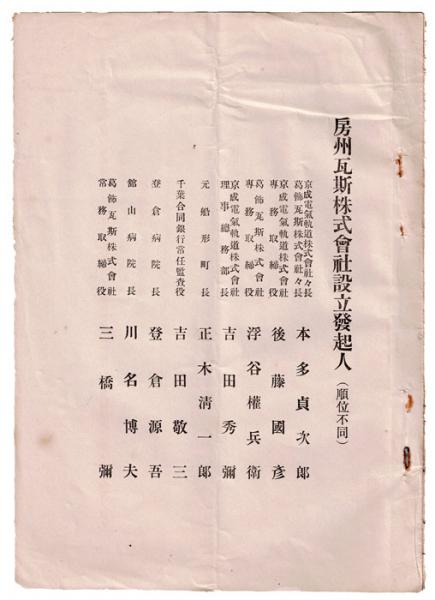 房州瓦斯株式會社設立發起人(順位不同)
京成電氣軌道株式會社々長
葛飾瓦斯株式會社々長
本多貞次郎
京成電氣軌道株式會社
專務取締役
後藤國彥
葛飾瓦斯株式會社
專務取締役
浮谷權兵衛
京成電氣軌道株式會社
理事總務部長
吉田秀彌
元船形町長
正木淸一郎
千葉合同銀行常任監査役
吉田敬三
登倉病院長
登倉源吾
館山病院長
川名博夫
葛飾瓦斯株式會社
常務取締役
三橋彌